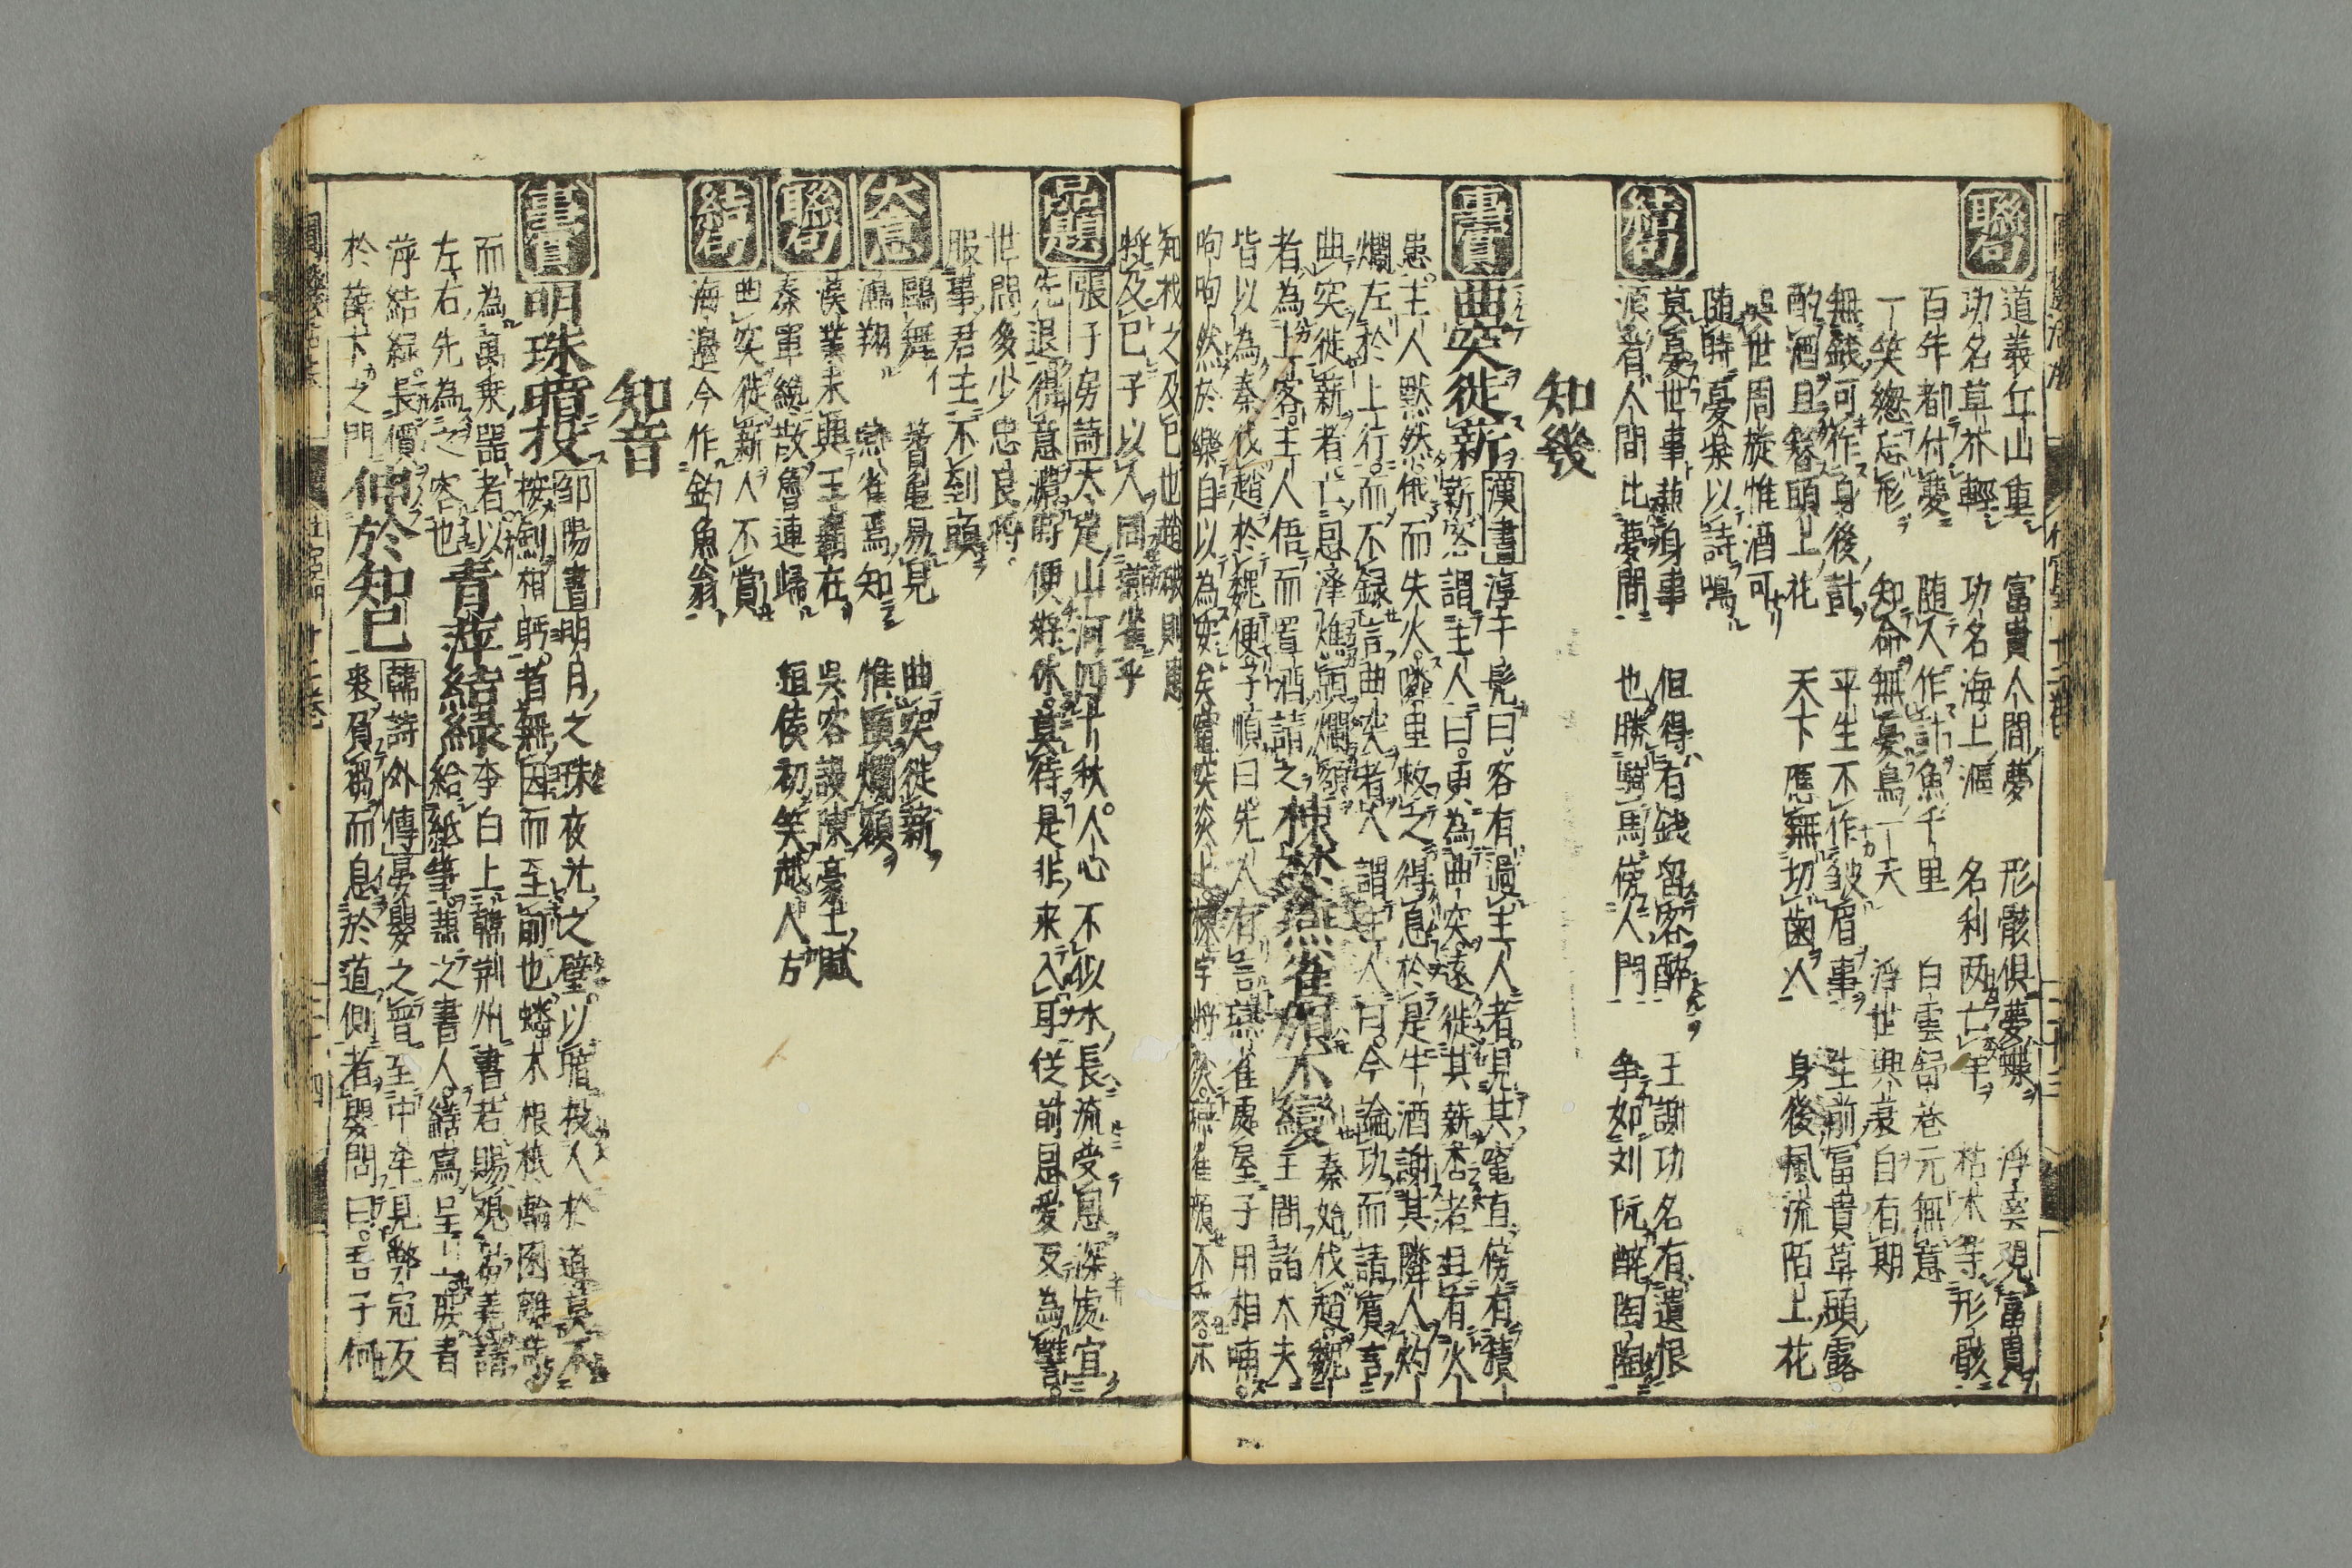 聯句
道義丘山重 富貴人間夢 形骸倶夢蝶 浮雲視富貴
功名草芥輕 功名海上漚 名利両亡羊 枯木等形骸
百年都付夢 随人作計魚千里 白雲舒巻元無意
一笑總忘形 知命無憂鳥一天 浮世興衰自有期
無銭可作身後計 平生不作皺眉事 生前冨貴草頭露
酌酒且簪頭上花 天下應無切齒人 身後風流陌上花
與世周旋惟酒可
随時憂樂以詩鳴
結句
莫憂世事兼身事 但得有銭留客酔 王謝功名有遺恨
須着人間比夢間 也勝騎馬傍人門 争如刘阮酔陶陶
知幾
書實
曲突徙薪 漢書 淳于髡曰客有過主人者見其竃直傍有積
薪客謂主人曰更為曲突遠徙其薪否者且有火
患主人黙然俄而失火隣里救之得息於是牛酒謝其隣人灼
爛左於上行而不録言曲突者人謂主人曰今論功而請賓言
曲突徙薪者亡恩澤燋頭爛額
者為上客主人悟而置酒請之 棟焚燕雀顔不變 秦始伐趙魏
王問諸大夫
皆以為秦伐趙於魏便子順曰先人有言燕雀處屋子用相哺
呴呴然於樂自以為安矣竃突炎上棟宇将焚燕雀顔不変不
知祸之及已也趙破則患
将及已子以人同燕雀乎
品題
張子房詩 大定山河四十秋人心不似水長流受恩深處宜
先退得意濃時便好休莫待是非来入耳従前恩愛反為讐
世間多少忠良将
服事君主不到頭
大意
鷗舞 蓍亀易見 曲突徙薪
鴻翔 燕雀焉知 惟頭爛額
聯句
漢業未興王覇在 吳客謾陳豪士賦
秦軍纔散魯連歸 桓侯初笑越人方
結句
曲突徙薪人不賞
海邉今作釣魚翁
知音
書實
明珠暗投 鄒陽書 明月之珠夜光之璧以暗投人於道莫不
按劍相眄者無因而至前也蟠木根柢輪囷離奇
而為萬乗器者以
左右先為之容也 青萍結緑 李白上韓荆州書若賜观芻蕘請
給紙筆兼之書人繕寫呈上庻青
萍結緑長價
於薛卞之門 伸於知己 韓詩外傳 晏嬰之晋至中牟見弊冠反
裘負芻而息於道側者嬰問曰吾子何